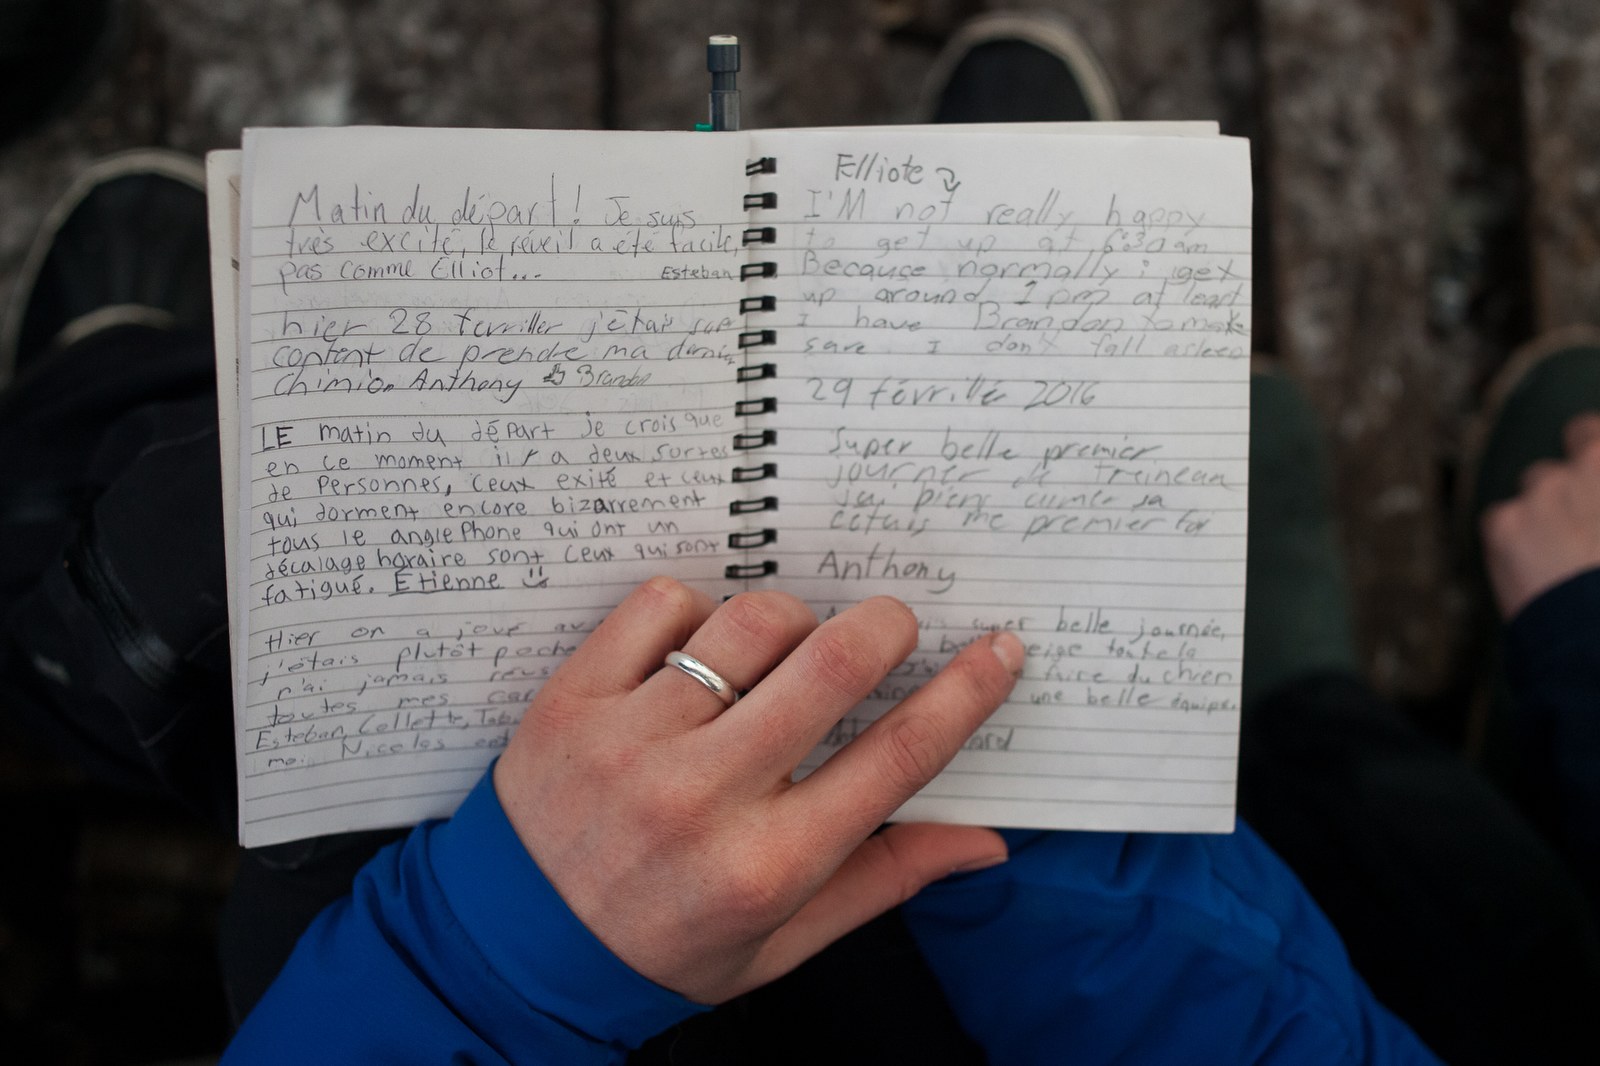 Matin du départ! Je suis
très excité, le réveil a été facile,
pas comme Elliot...
Esteban
hier 28 fevriller j'étais
content de prendre ma
chimio. Anthony
Brandon
LE matin du départ je crois que
en ce moment il y a deux sortes
de personnes, ceux exité et ceux
qui dorment encore bizarrement
tous le anglephone qui ont un
décalage horaire sont ceux qui sont
fatigué. Étienne
Hier on a joué
j'étais plutôt
n'ai jamais
toutes mes
Esteban, Collette,
moi Nicolas
Elliote
I'M not really happy
to get up at 6:30 am
Because normally i get
up around 1 pm at least
I have Brandon to make
sure I don't fall asleep
29 févrillé 2016
Super belle premier
journer de treineau
premier foi
Anthony
super belle journée,
neige toute la
faire du chien
une belle équipe.